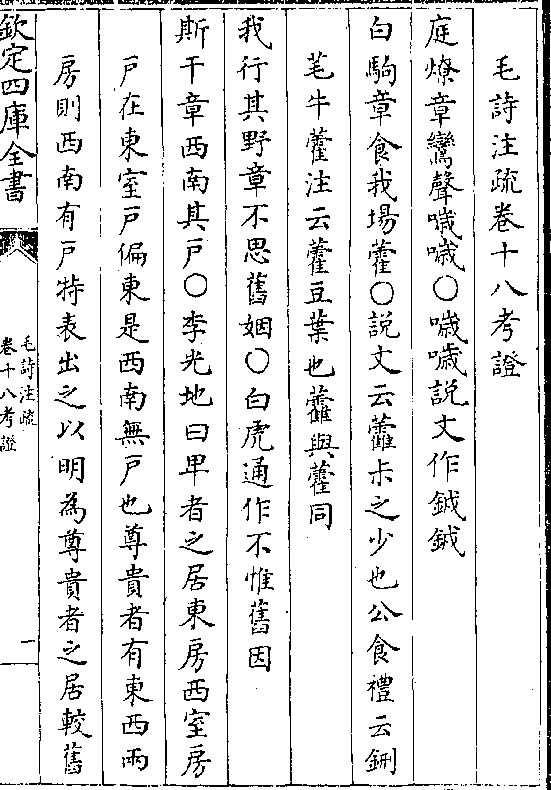 毛詩注疏卷十八考證
庭燎章鸞聲噦噦〇噦噦説文作鉞鉞
白駒章食我場藿〇説文云藿尗之少也公食禮云鉶
芼牛藿注云藿豆葉也藿與藿同
我行其野章不思舊姻〇白虎通作不惟舊因
斯干章西南其戸〇李光地曰卑者之居東房西室房
戸在東室戸偏東是西南無戸也尊貴者有東西兩
房則西南有戸特表出之以明為尊貴者之居較舊
欽定四庫全書
毛詩注疏
卷十八考證
一